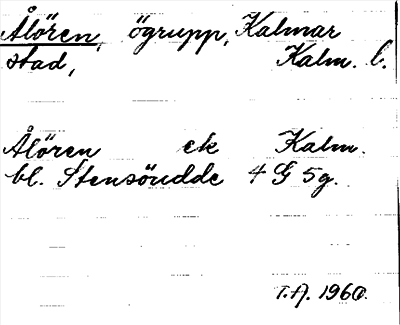 Ålören, ögrupp, Kalmar
stad, Kalm. l.
Ålören ek Kalm.
bl. Stensöudde 4 G 5g.
T.A. 1960.